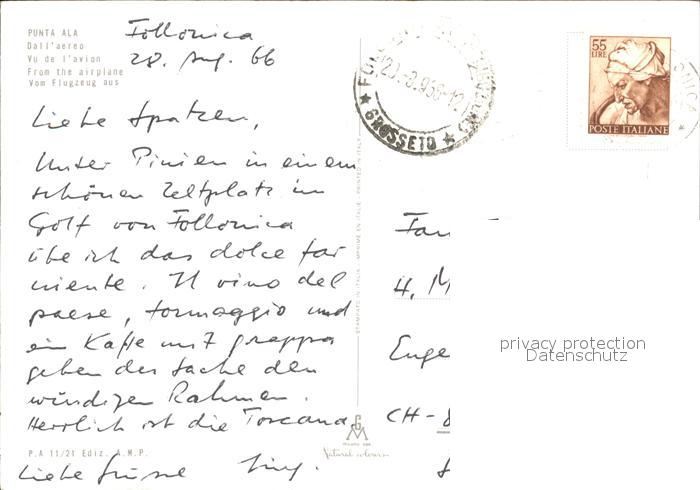 PUNTA ALA
Dall'aereo
Vu de l'avion
From the airplane
Vom Flugzeug aus
Follonica
28. Aug. 66
Liebe Spatzen,
Unter Pinien in einem
schönen Zeltplatz im
Golf von Follonica
übe ich das dolce far
niente. Il vino del
paese, formaggio und
ein Kaffe mit grappa
geben der Sache den
würdigen Rahmen.
Herrlich ist die Toscana.
Liebe Grüsse
P.A 11/21 Ediz. A.M.P.
Natural colours
GROSSETO
55
LIRE
POSTE ITALIANE
Fam
H. M
Euge
CH-8
privacy protection
Datenschutz